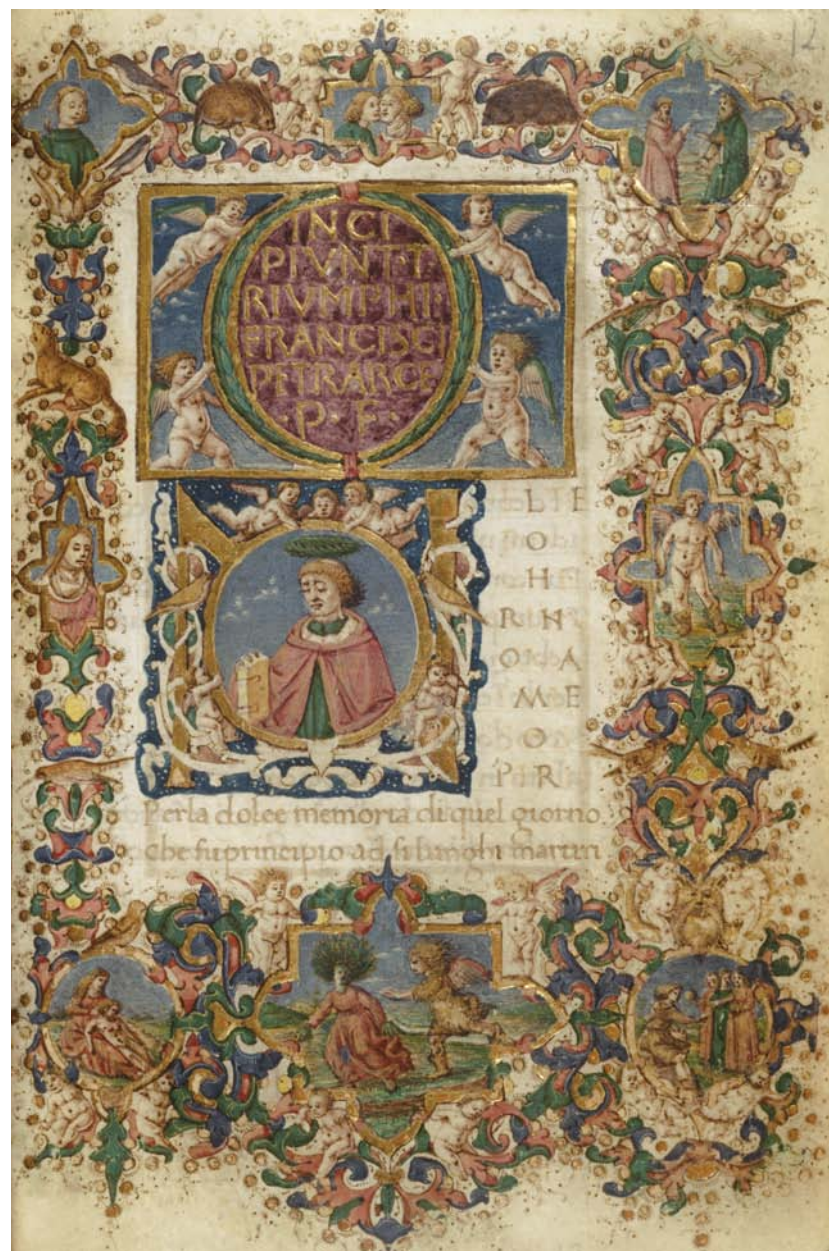 12
INCI
PIVNT·T
RIVMPHI·
FRANCISCI
PETRARCE
·P·F·
N
L E
O
H
R N
O A
M E
O
P R
Perla dolce memoria di quel giorno
Che fu principio ad si lunghi martiri